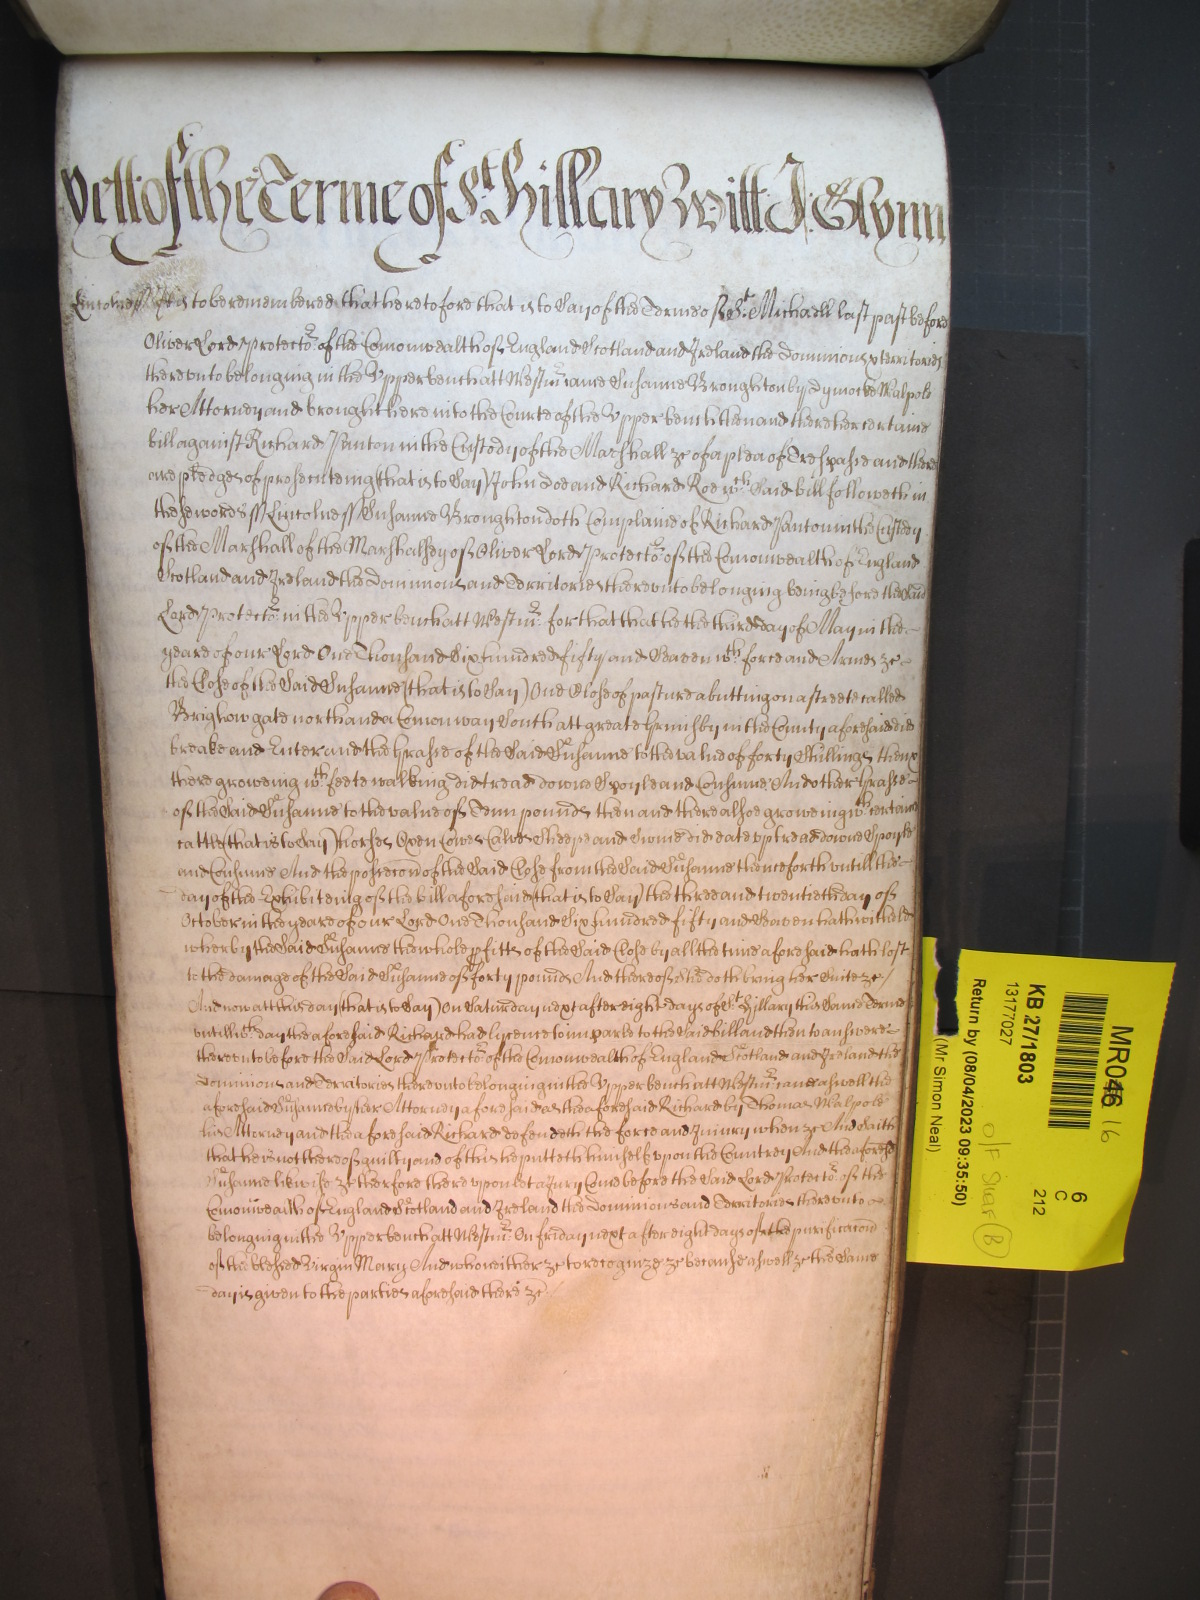 yett of the Terme of St Hillary Witt J: Glynn
Lincolne ss It is to be remembered that heretofore that is to Say of the Terme of St. Michaell last past before
Oliver Lord Protector of the Comonwealth of England Scotland and Ireland the Dominions & territories
thereunto belonging in the Upper bench att Westmr: came Susanne Broughton by Dymocke Walpole
her Attorney and brought here into the Courte of the Upper bench then and there her certaine
bill against Richard Fanton in the Custody of the Marshall &c of a plea of Trespasse and there
are pledges of prosecuteing (that is to Say) John Doe and Richard Roe wch Said bill followeth in
these words ss Lincolne ss Susanne Broughton doth Complaine of Richard Fanton in the Custody
of the Marshall of the Marshalsey of Oliver Lord Protector of the Comonwealth of England
Scotland and Ireland the Dominions and Territories thereunto belonging being before the Said
Lord Protector in the Upper bench att Westmr: for that that he the third day of May in the
yeare of our Lord One Thousand Six hundred fifty and Seaven wth force and Armes &c
the Close of the Said Susanne (that is to Say) One Close of pasture abutting on a streete called
Brighowgate north and a Comon way South att greate Grimsby in the County aforesaid did
breake and Enter and the Grasse of the Said Susanne to the value of forty Shillings then &
there groweing wth feete walking did tread downe Spoyle and Consume And other Grasse
of the Said Susanne to the value of Tenn pounds then and there alsoe groweing wth certaine
cattle (that is to Say) horses Oxen Cowes Calves Sheepe and Swine did eate upp tread downe Spoyle
and Consume And the possession of the Said Close from the Said Susanne thenceforth untill the
day of the Exhibiteing of the bill aforesaid (that is to Say) the three and twentieth day of
October in the yeare of our Lord One Thousand Six hundred fifty and Seaven hath witheld
wherby the Said Susanne the whole pfitts of the Said Close by all the time aforesaid hath lost
to the damage of the Said Susanne of forty pounds And thereof She doth bring her Suite &c /
And now att this day (that is to Say) On Saturday next after eight days of St Hillary this Same Terme
untill wch day the aforesaid Richard had lycence to imparle to the Said bill and then to answere
thereunto before the Said Lord Protector of the Comonwealth of England Scotland and Ireland the
Dominions and Territories thereunto belonging in the Upper bench att Westmr: came aswell the
aforesaid Susanne by her Attorney aforesaid as the aforesaid Richard by Thomas Walpole
his Attorney and the aforesaid Richard defendeth the force and Injury when &c And Saith
that he is not thereof guilty and of this he putteth himself upon the Countrey And the aforesd
Susanne likewise &c therfore there upon let a Jury Come before the Said Lord Protector of the
Comonwealth of England Scotland and Ireland the Dominions and Territories thereunto
belonging in the Upper bench att Westmr: On friday next after eight days of the purificacion
of the blessed Virgin Mary And who neither &c to recognize &c because aswell &c the Same
day is given to the parties aforesaid there &c
MR046 16
KB 27/1803
13177027
Return by (08/04/2023 09:35:50)
(Mr Simon Neal)
6
C
212
O/F Shelf (B)